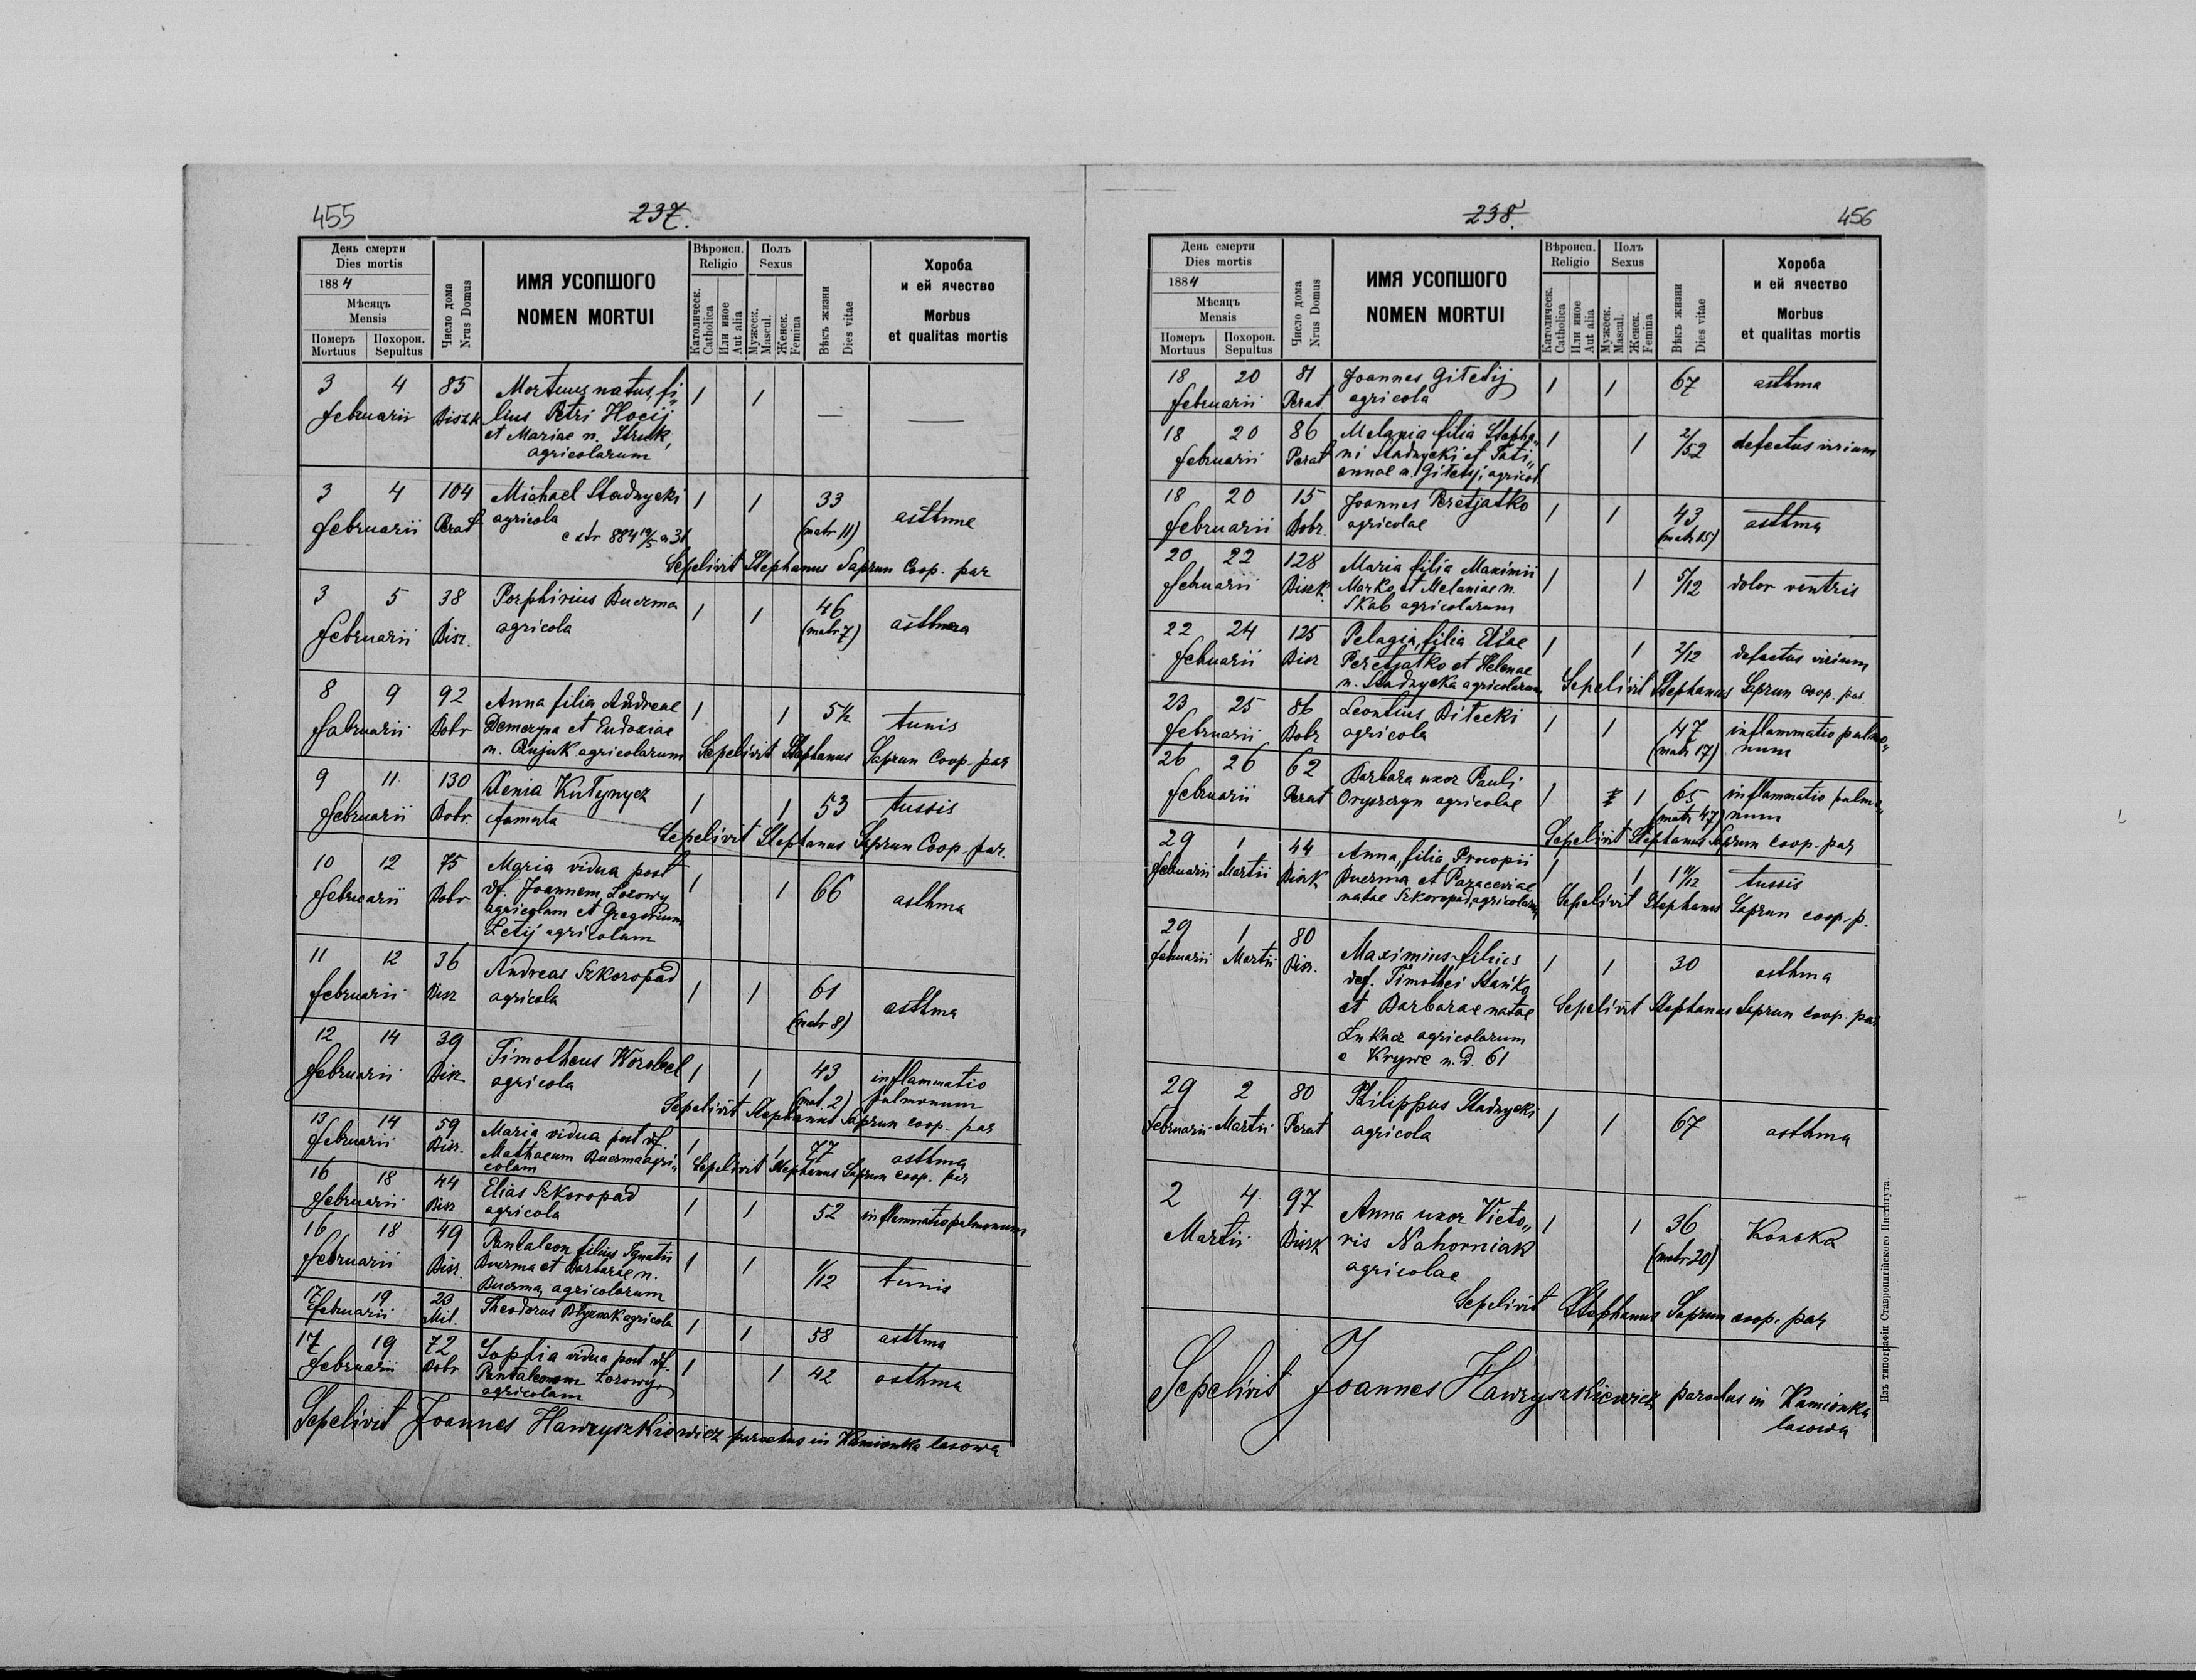 455
237.
День смерти
Dies mortis
1884
Мѣсяцъ
Mensis
Померъ
Mortuus
Похорон.
Sepultus
Число дома
Nrus Domus
ИМЯ УСОПШОГО
NOMEN MORTUI
Вѣроисп.
Religio
Католическ.
Catholica
Или иное
Aut alia
Полъ
Sexus
Мужеск.
Mascul.
Женск.
Femina
Вѣкъ жизни
Dies vitae
Хороба
и ей ячество
Morbus
et qualitas mortis
3 4 85 Mortuus natus, fi„ 1 1 — —
februarii Biszk lius Petri Hocij
et Mariae n. Struk,
agricolarum
3 4 104 Michael Stadnycki 1 1 33
februarii Perat agricola (matr 11) asthme
e str 884 19/5 n 31
Sepelivit Stephanus Saprun Coop. par
3 5 38 Porphirius Buczma 1 1 46
februarii Bisz. agricola (matr 7) asthma
8 9 92 Anna filia Andreae 1 1 5½ tussis
fabruarii Bobr Demeryna et Eudoxiae
n. agricolarum Sepelivit Stephanus Saprun Coop. par
9 11 130 Xenia Kutynycz 1 1 53 tussis
februarii Bobr. famula
Sepelivit Stephanus Saprun Coop. par.
10 12 75 Maria vidua post 1 1 66 asthma
februarii Bobr df. Joannem Lozowy
agricolam et Gregorium
Letij agricolam
11 12 36 Andreas Szkoropad 1 1 61 asthma
februarii Bisz agricola (matr 8)
12 14 39 Timotheus Worobel 1 1 43 inflammatio
februarii Bisz agricola (mat. 2) pulmonum
Sepelivit Stephanus Saprun coop. par
13 14 59 Maria vidua post df. 1 1 77 asthma
februarii Bisz. Mathaeum Buczma agri„
colam Sepelivit Stephanus Saprun coop. par
16 18 44 Elias Szkoropad 1 1 52 inflammatio pulmonum
februarii Bisz agricola
16 18 49 Pantaleon filius Ignatii 1 1 1/12 tussis
februarii Bisz. Buczma et Barbarae n.
Buczma, agricolarum
17 19 23 Theodorus agricola 1 1 58 asthma
februarii Mil.
17 19 72 Sophia vidua post df. 1 1 42 asthma
februarii Bobr Pantaleonem Lozowy,
agricolam
Sepelivit Joannes Hawryszkiewicz parochus in Kamionka lasowa
238.
456
День смерти
Dies mortis
1884
Мѣсяцъ
Mensis
Померъ
Mortuus
Похорон.
Sepultus
Число дома
Nrus Domus
ИМЯ УСОПШОГО
NOMEN MORTUI
Вѣроисп.
Religio
Католическ.
Catholica
Или иное
Aut alia
Полъ
Sexus
Мужеск.
Mascul.
Женск.
Femina
Вѣкъ жизни
Dies vitae
Хороба
и ей ячество
Morbus
et qualitas mortis
18 20 81 Joannes Giletij 1 1 67 asthma
februarii Perat. agricola
18 20 86 Melania filia Stepha„ 1 1 2/52 defectus virium
februarii Perat ni Stadnycki et Tati„
annae n. Giletij, agricol
18 20 15 Joannes Peretjatko 1 1 43 asthma
februarii Bobr. agricolae (matr 15)
20 22 128 Maria filia Maximii 1 1 5/12 dolor ventris
februarii Biszk. Marko et Melaniae n.
Skab agricolarum
22 24 125 Pelagia, filia Eliae 1 1 2/12 defectus virium
februarii Bisz Peretjatko et Helenae
n. Stadnycka agricolarum Sepelivit Stephanus Saprun coop. par.
23 25 86 Leontius Bilecki 1 1 47 inflammatio pulmo„
februarii Bobr agricola (matr 17) num
26 26 62 Barbara uxor Pauli 1 1 65 inflammatio pulmo„
februarii Perat Oryszczyn agricolae (matr 47) num
Sepelivit Stephanus Saprun coop. par
29 1 44 Anna, filia Procopii 1 1 1 11/12 tussis
februarii Martii Biszk Buczma et Parasceviae
natae Szkoropad, agricolarum Sepelivit Stephanus Saprun coop. p.
29 1 80 Maximius filius 1 1 30 asthma
februarii Martii Bisz. def. Timothei Stańko
et Barbarae natae Sepelivit Stephanus Saprun coop. par
agricolarum
e Krywe n. d. 61
29 2 80 Philippus Stadnycki 1 1 67 asthma
februarii Martii Perat agricola
2 4 97 Anna uxor Victo„ 1 1 36 Konska
Martii Biszk ris Nahorniak (matr 20)
agricolae
Sepelivit Stephanus Saprun coop. par
Sepelivit Joannes Hawryszkiewicz parochus in Kamionka
lasowa
Изъ типографіи Ставропигійского Института.